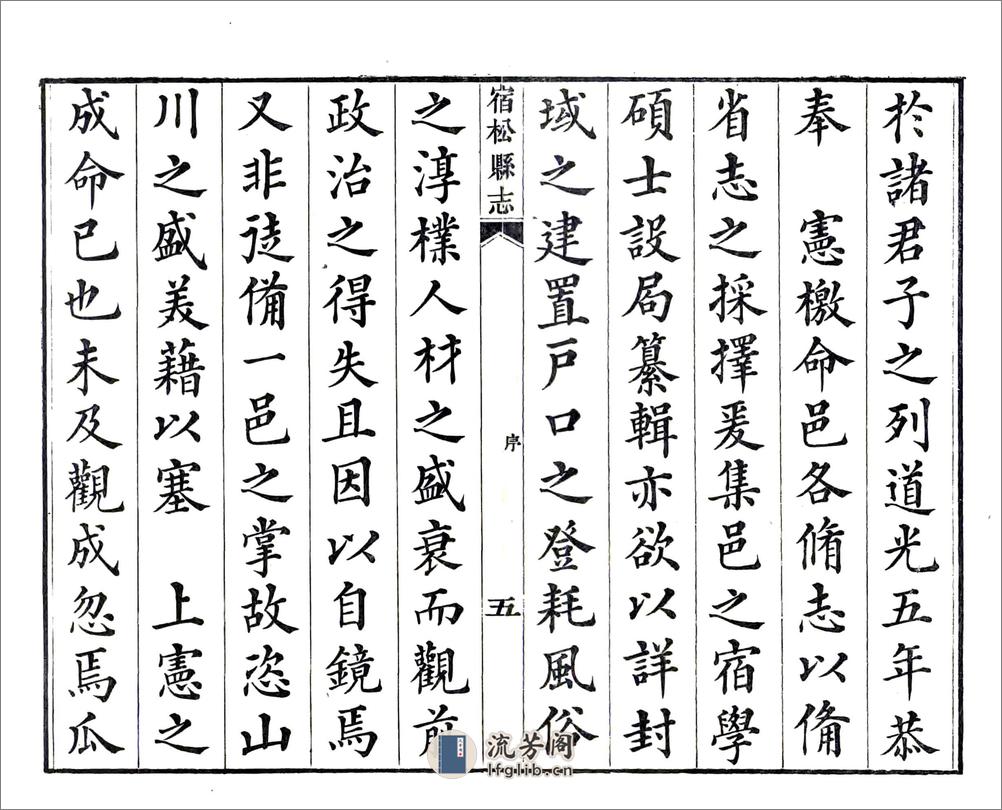 於諸君子之列道光五年恭
奉　憲檄命邑各脩志以俻
省志之採擇爰集邑之宿學
碩士設局纂輯亦欲以詳封
域之建置戸口之登耗風俗
宿松縣志
序
五
之淳樸人材之盛衰而觀前
政治之得失且因以自鏡焉
又非徒備一邑之掌故恣山
川之盛美藉以塞　上憲之
成命已也未及觀成忽焉瓜
流芳阁
lfglib.cn